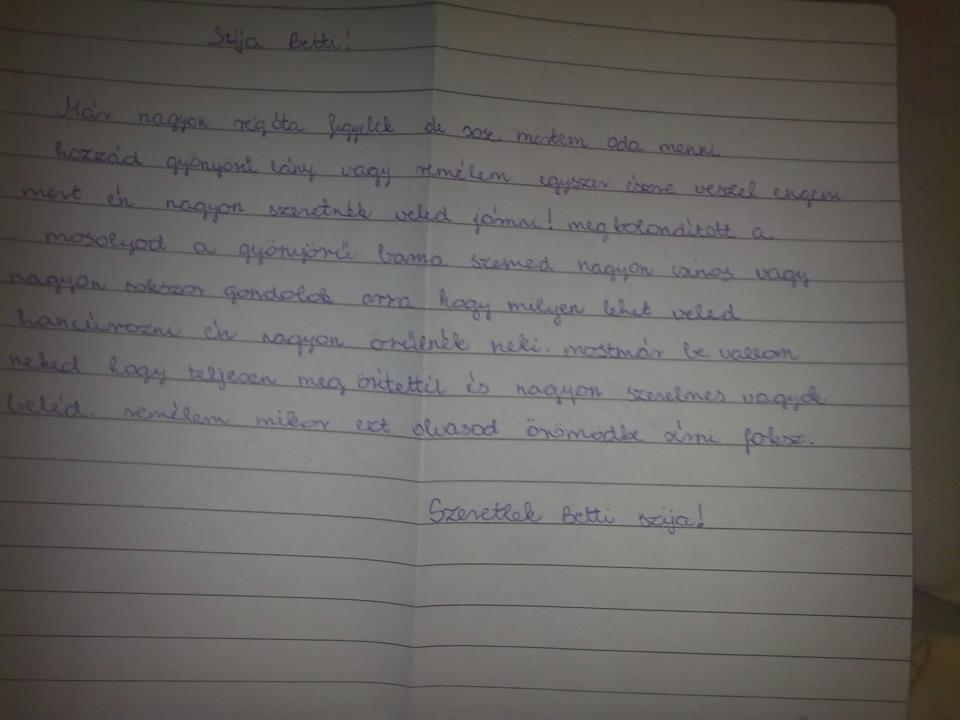 Szija Betti!
Már nagyon régóta figyelek de sose mertem oda menni
hozzád gyönyörű lány vagy remélem egyszer észre veszel engem
mert én nagyon szeretnék veled járnni! megbolondított a
mosolyod a gyönyörű barna szemed nagyon vános vagy
nagyon sokszor gondolok arra hogy milyen lehet veled
hancúrozni én nagyon örülnék neki. mostmár be vallom
neked hogy teljesen meg őrítettél és nagyon szerelmes vagyok
beléd. remélem mikor ezt olvasod örömödbe sírni foksz.
Szeretlek Betti szija!